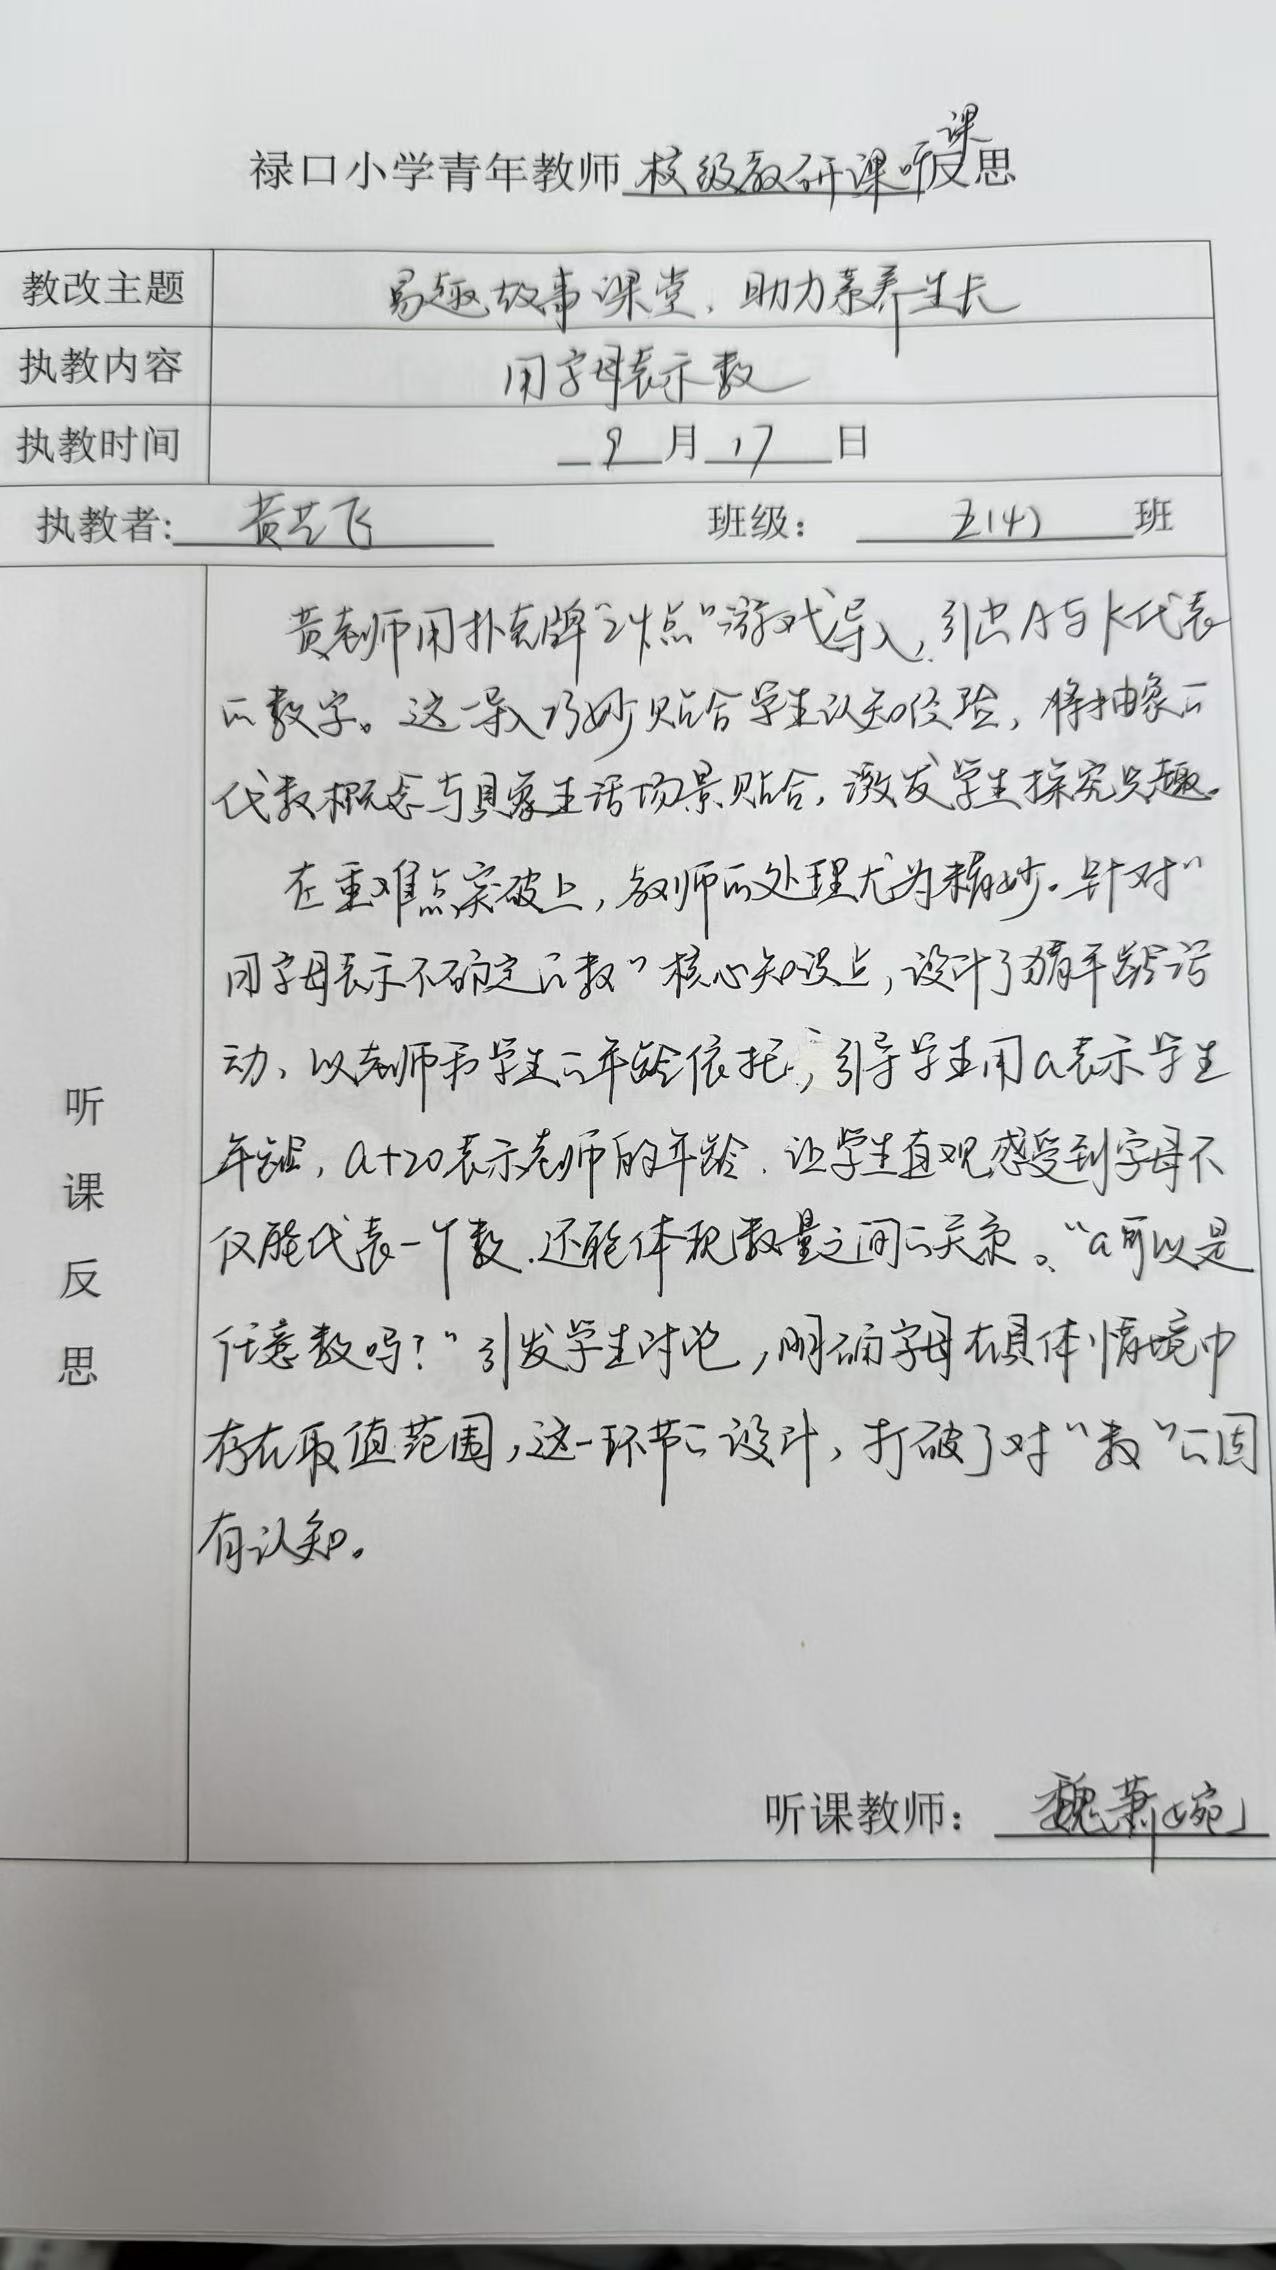 禄口小学青年教师校级教研课听课反思
教改主题 易趣故事课堂,助力素养生长
执教内容 用字母表示数
执教时间 9月17日
执教者: 黄艺飞 班级: 五(4)班
听课反思
黄老师用扑克牌“24点”游戏导入,引出A与K代表
的数字。这一导入巧妙贴合学生认知经验,将抽象的
代数概念与具象生活场景贴合,激发学生探究兴趣。
在重难点突破上,教师的处理尤为精妙。针对“
用字母表示不确定的数”核心知识点,设计了猜年龄活
动、以老师和学生的年龄依托,引导学生用a表示学生
年龄,a+20表示老师的年龄.让学生直观感受到字母不
仅能代表一个数.还能体现数量之间的关系。“a可以是
任意数吗?”引发学生讨论,明确字母在具体情境中
存在取值范围,这一环节的设计,打破了对“数”的固
有认知。
听课教师: 魏萧婉